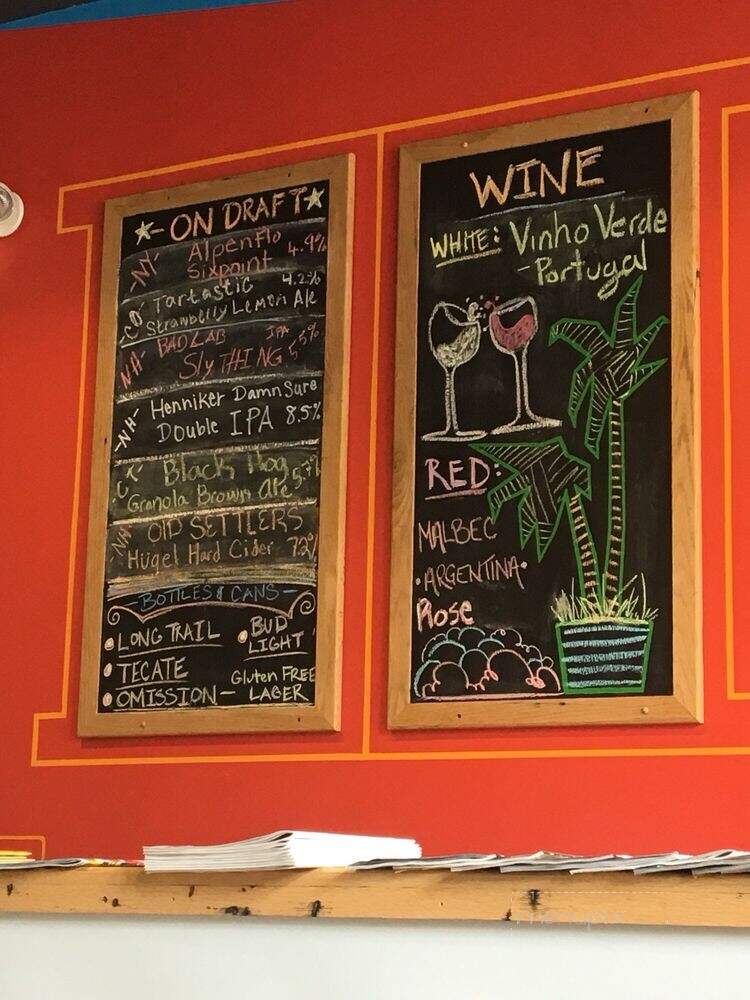 ON DRAFT
NY- Alpenflo 4.9%
Sixpoint
CO- Tartastic 4.2%
Strawberry Lemon Ale
NH- BAD LAB IPA
Sly THING 5.5%
NH- Henniker Damn Sure
Double IPA 8.5%
CT- Black Hog
Granola Brown Ale
NH- OlD SETTLERS
Hügel Hard Cider
-BOTTLES & CANS-
LONG TRAIL
BUD
LIGHT
TECATE
OMISSION - Gluten FREE
LAGER
WINE
WHITE: Vinho Verde
-Portugal
RED:
MALBEC
·ARGENTINA·
Rose